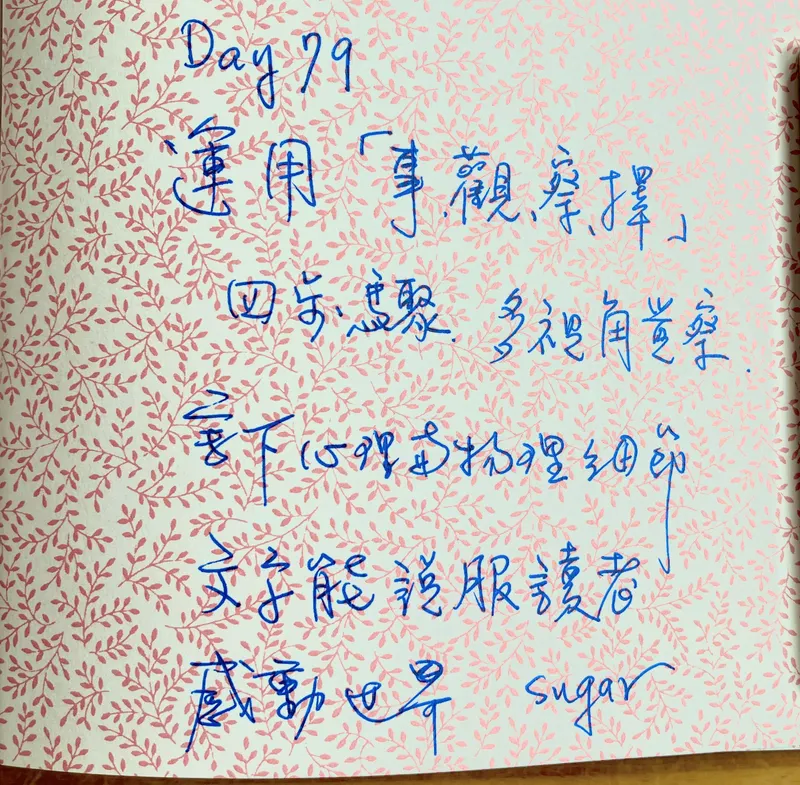 Day 79
運用「事、觀、察、擇」
四步驟.多視角覺察.
寫下心理與物理細節
文字能說服讀者
感動世界 sugar